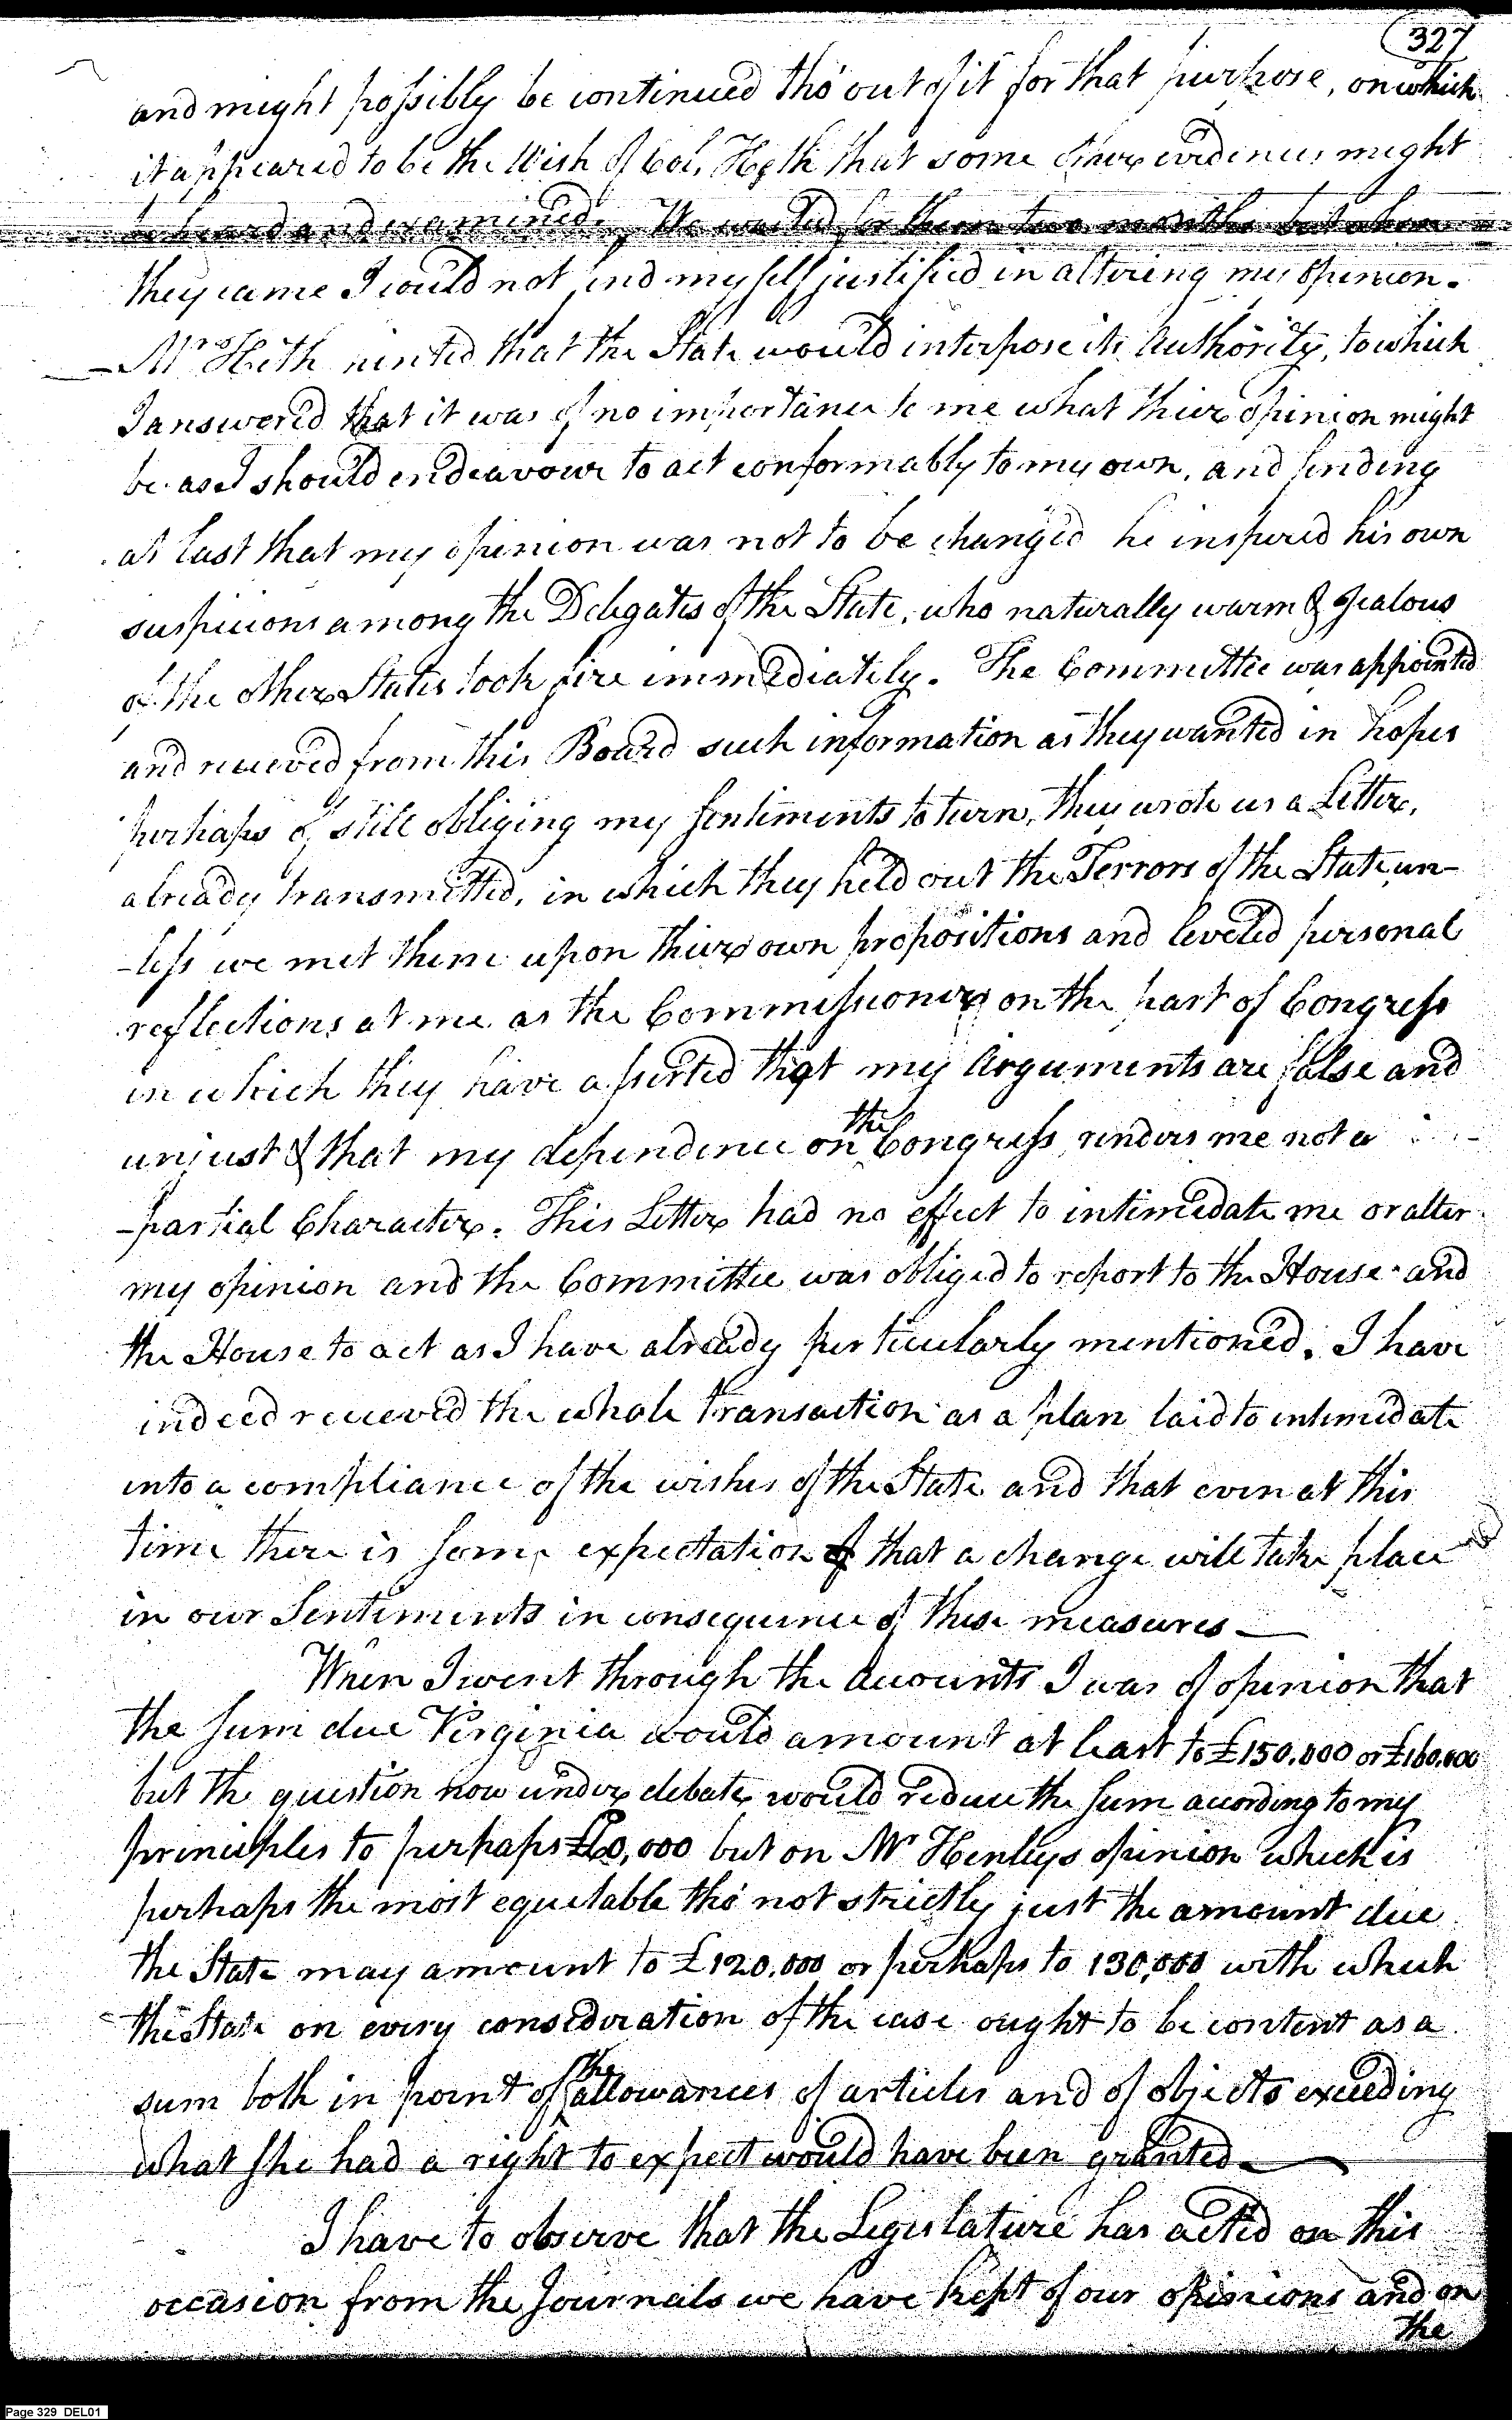 327
and might possibly be continued tho' out of it for that purpose, on which
it appeared to be the Wish of Col. Heth that some other evidences might
be heard and examined. We waited for them two months but when
they came I could not find myself justified in altering my opinion.
– Mr. Heth hinted that the State would interpose its Authority, to which
I answered that it was of no importance to me what their opinion might
be as I should endeavour to act conformably to my own, and finding
at last that my opinion was not to be changed he inspired his own
suspicions among the Delegates of the State, who naturally warm & jealous
of the other States took fire immediately. The Committee was appointed
and received from this Board such information as they wanted in hopes
perhaps of still obliging my sentiments to turn, they wrote us a Letter,
already transmitted, in which they held out the Terrors of the State un-
-less we met them upon their own propositions and leveled personal
reflections at me as the Commissioner on the part of Congress
in which they have asserted that my Arguments are false and
unjust & that my dependence on the Congress renders me not a
-partial Character. This Letter had no effect to intimidate me or alter
my opinion and the Committee was obliged to report to the House and
the House to act as I have already perticularly mentioned. I have
indeed received the whole transaction as a plan laid to intimidate
into a compliance of the wishes of the State and that even at this
time there is some expectation that a change will take place
in our Sentiments in consequence of these measures —
When I went through the Accounts I was of opinion that
the sum due Virginia would amount at least to £150.000 or £160.000
but the question now under debate would reduce the sum according to my
principles to perhaps but on Mr Henleys opinion which is
perhaps the most equitable tho' not strictly just the amount due
the State may amount to £120.000 or perhaps to 130,000 with which
the State on every consideration of the case ought to be content as a
sum both in point of the allowances of articles and of objects exceeding
what she had a right to expect would have been granted —
I have to observe that the Legislature has acted on this
occasion from the Journals we have kept of our opinions and on
the
Page 329 DEL01